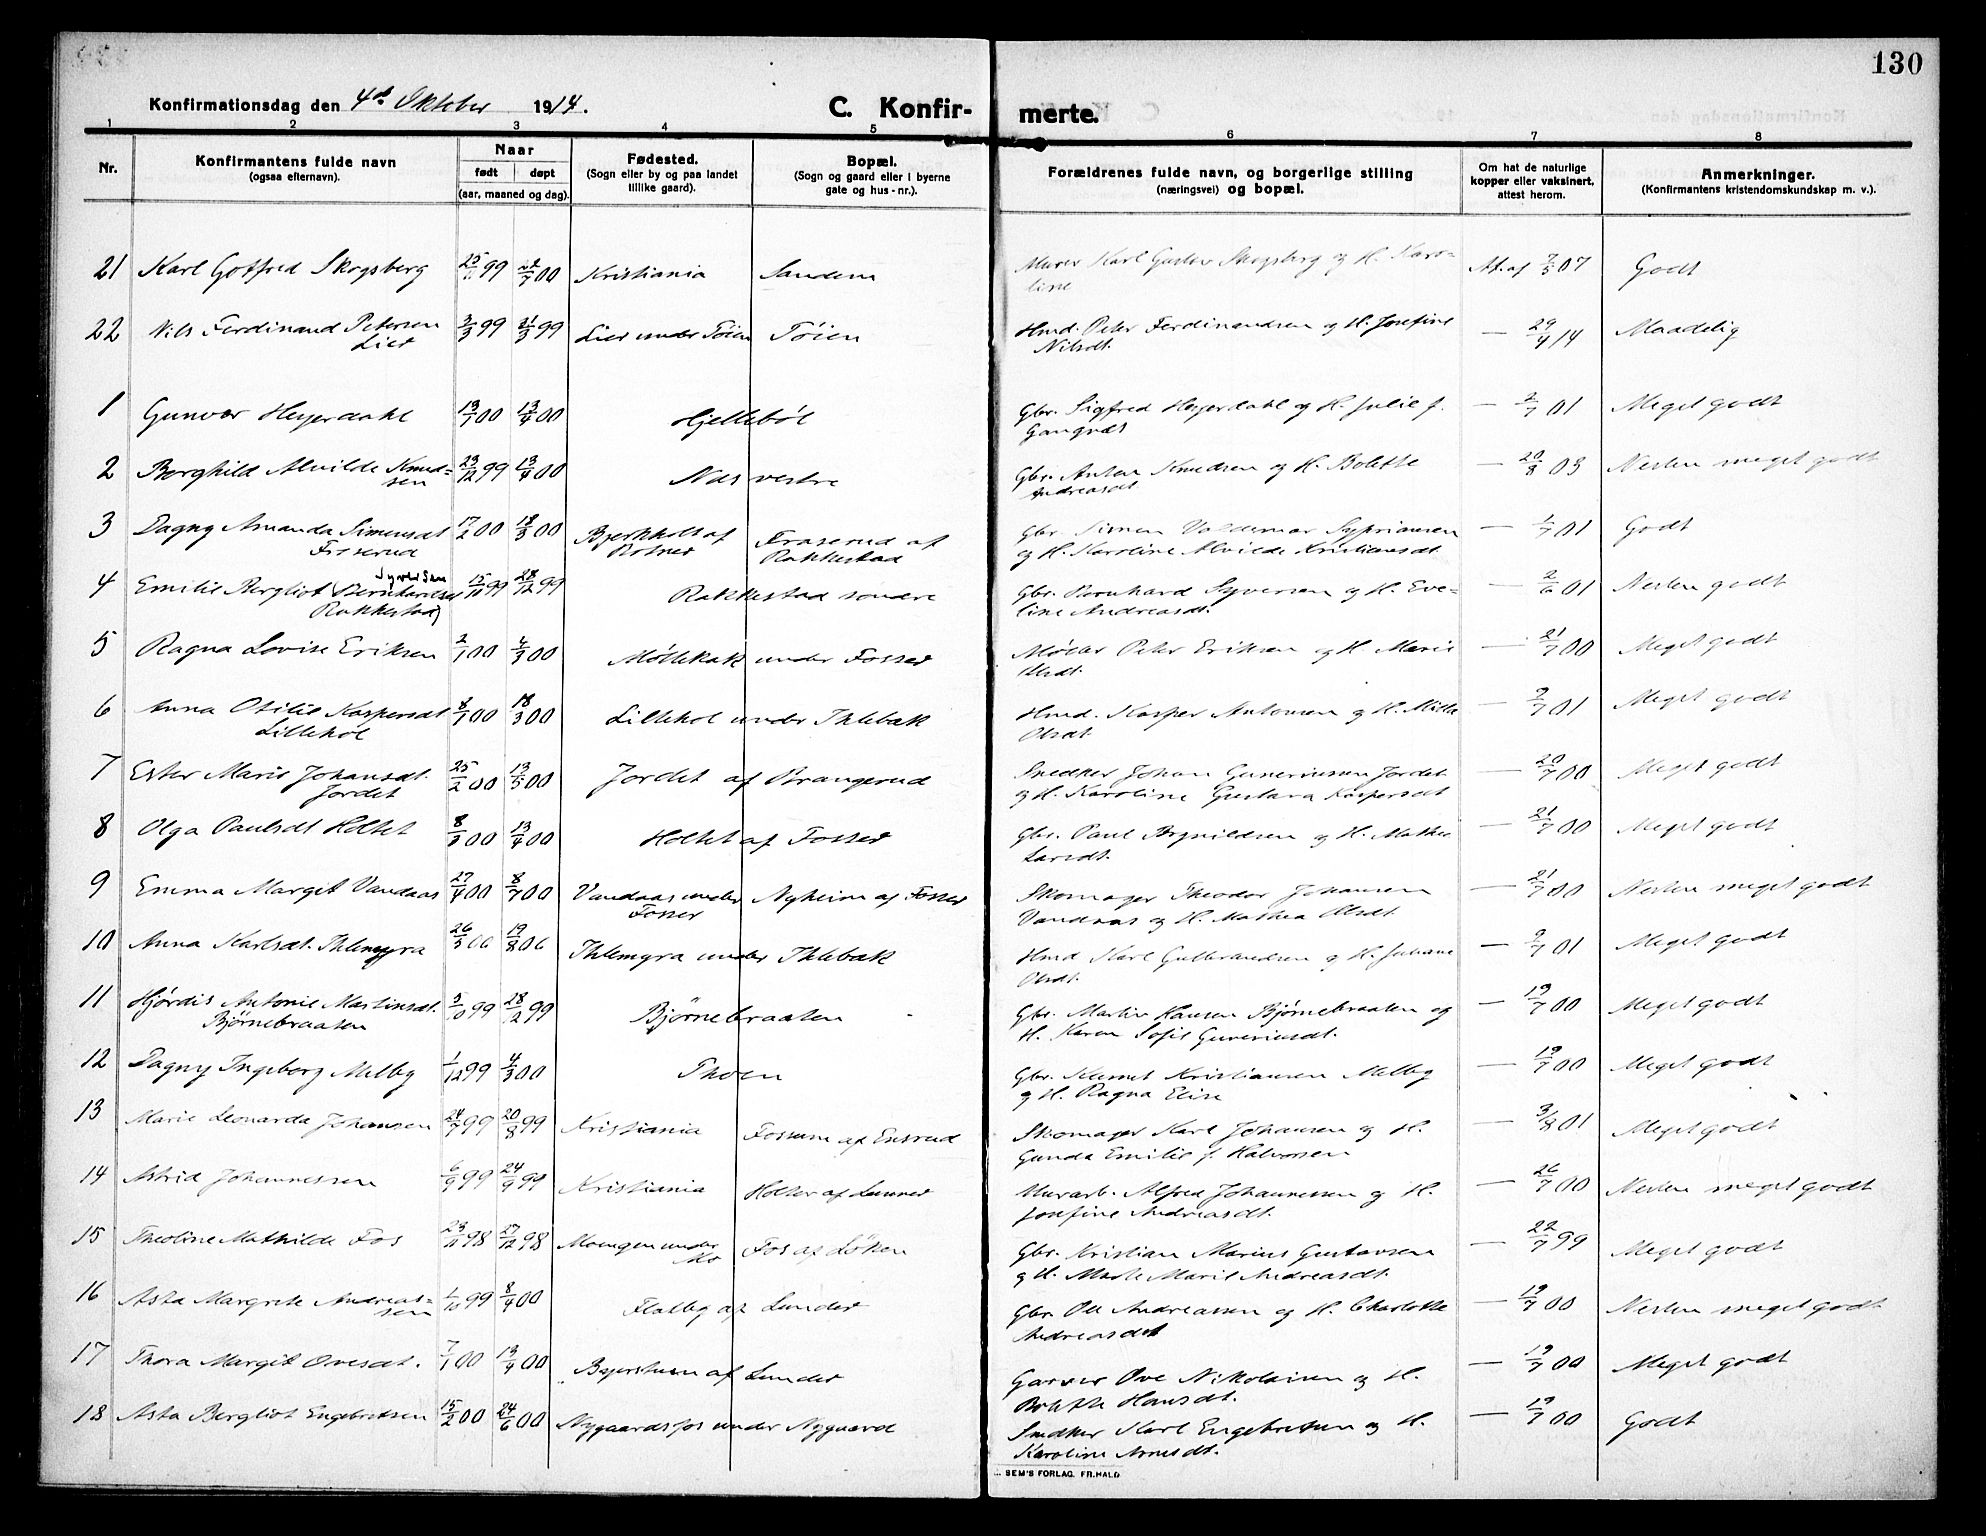 130
Konfirmationsdag den 4de Oktober 1914.
C. Konfir-
merte.
1 2 3 4 5 6 7 8
Nr.
Konfirmantens fulde navn
(ogsaa efternavn).
Naar
født døpt
(aar, maaned og dag).
Fødested.
(Sogn eller by og paa landet
tillike gaard).
Bopæl.
(Sogn og gaard eller i byerne
gate og hus-nr.).
Forældrenes fulde navn, og borgerlige stilling
(næringsvei) og bopæl.
Om hat de naturlige
kopper eller vaksinert,
attest herom.
Anmerkninger.
(Konfirmantens kristendomskundskap m. v.).
21 Karl Gotfred Skogsberg 25/11 99 22/7 00 Kristiania Sandem Murer Karl Gustav Skogsberg og H. Karo-
line At. af 7/5 07 Godt
22 Nils Ferdinand Petersen 3/3 99 21/3 99 Lier under Töien Töien Hmd. Peter Ferdinandsen og H. Josefine — 29/4 14 Maadelig
Lier Nilsdt.
1 Gunvor Heyerdahl 13/1 00 13/4 00 Hjellebøl Gbr. Sigfred Heyerdahl og H. Julie f. — 2/7 01 Meget godt
2 Borghild Alvilde Knud- 23/12 99 13/4 00 Nas vestre Gbr. Anton Knudsen og H. Bolette — 20/8 03 Nesten meget godt
sen Andreasdt.
3 Dagny Amanda Simensdt 17/2 00 18/3 00 Bjerkholt af Fraserud af Gbr. Simen Valdemar Sypriansen — 1/7 01 Godt
Fraserud Rakkestad og H. Karoline Alvilde Kristiansdt.
Syversen
4 Emilie Bergliot (Berntsen 15/11 99 28/12 99 Rakkestad søndre Gbr. Bernhard Syversen og H. Eve- — 2/6 01 Nesten godt
Rakkestad) line Andreasdt.
5 Ragna Lovise Eriksen 2/1 00 4/3 00 Möllekak under Fosser Møller Peter Eriksen og H. Marie — 21/7 00 Meget godt
Olsdt.
6 Anna Otilie Kaspersdt 8/1 00 18/3 00 Lillehol under Ihlebæk Hmd. Kasper Antonsen og H. Milla — 2/7 01 Meget godt
Lillehol Olsdt.
7 Ester Marie Johansdt. 25/2 00 13/5 00 Jordet af Brangerud Snedker Johan Gunerinsen Jordet — 20/7 00 Meget godt
Jordet og H. Karoline Gustava Kaspersdt
8 Olga Paulsdt Holtet 8/2 00 13/4 00 Holtet af Fosser Gbr. Paul Brynildsen og H. Mathea — 21/7 00 Meget godt
Larsdt.
9 Emma Marget Vandaas 27/4 00 8/7 00 Vandaas under Nyheim af Fosser Skomager Theodor Johansen — 21/7 00 Nesten meget godt
Fosser Vandaas og H. Mathea Olsdt.
10 Anna Karlsdt. Ihlemyra 26/3 00 19/8 00 Ihlemyra under Ihlebæk Hmd Karl Gulbrandsen og H. Juliane — 2/7 01 Meget godt
Olsdt.
11 Hjördis Antonie Martinsdt. 5/10 99 28/12 99 Bjørnebraaten Gbr. Martin Hansen Bjørnebraaten og — 19/7 00 Meget godt
Björnebraaten H. Karen Sofie Guneriusdt.
12 Dagny Ingeborg Melby 1/12 99 4/3 00 Thoen Gbr. Kristiansen Melby — 19/7 00 Meget godt
og H. Ragna Elise
13 Marie Leonarda Johansen 24/7 99 20/8 99 Kristiania Fossum af Ensrud Skomager Karl Johansen og H. — 3/8 01 Meget godt
Gunda Emilie f. Halvorsen
14 Astrid Johannessen 6/9 99 24/9 99 Kristiania Holter af Lunner Murarb. Alfred Johannessen og H. — 26/7 00 Nesten meget godt
Josefine Andreasdt.
15 Theoline Mathilde Fos 23/11 98 27/12 98 Moengen under Fos af Löken Gbr. Kristian Marius Gustavsen — 22/7 99 Meget godt
Mo og H. Marte Marie Andreasdt.
16 Asta Margrete Andreas- 1/10 99 8/4 00 Flatby af Lunder Gbr. Ole Andreassen og H. Charlotte — 19/7 00 Nesten meget godt
sen Andreasdt
17 Thora Margit Ovesdt. 7/1 00 13/4 00 af Lunder Garver Ove Nikolaisen og H. — 19/7 00 Meget godt
Bolette Hansdt.
18 Asta Bergliot Engebretsen 15/2 00 24/6 00 Nygaardsfos under Nygaard Snedker Karl Engebretsen og H. — 19/7 00 Godt
Karoline Arnesdt.
SEM'S FORLAG. FR.HALD